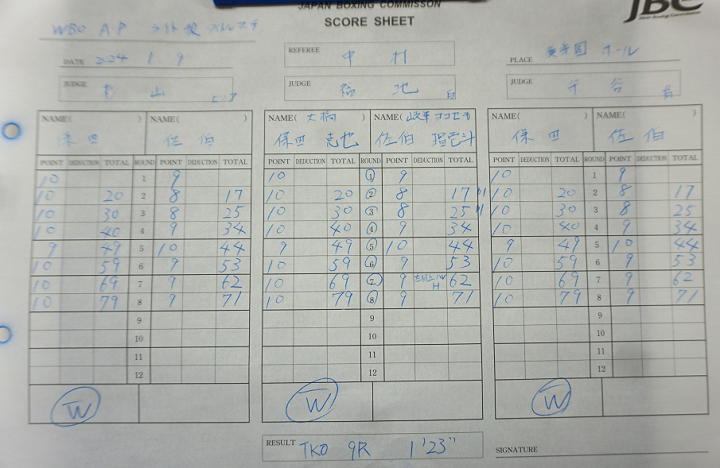 JAPAN BOXING COMMISSON
SCORE SHEET
JBC
WBO A.P ライト級 タイトルマッチ
DATE 2024 1 9
REFEREE 中村
PLACE 後楽園ホール
JUDGE 山
JUDGE 福地
JUDGE
NAME( ) NAME( ) NAME( 大橋 ) NAME( 岐阜ヨコゼキ ) NAME( ) NAME( )
保田 佐伯 保田 克也 佐伯 瑠壱斗 保田 佐伯
POINT DEDUCTION TOTAL ROUND POINT DEDUCTION TOTAL POINT DEDUCTION TOTAL ROUND POINT DEDUCTION TOTAL POINT DEDUCTION TOTAL ROUND POINT DEDUCTION TOTAL
10 1 9 10 1 9 10 1 9
10 20 2 8 17 10 20 2 8 17 10 20 2 8 17
10 30 3 8 25 10 30 3 8 25 10 30 3 8 25
10 40 4 9 34 10 40 4 9 34 10 40 4 9 34
9 49 5 10 44 9 49 5 10 44 9 49 5 10 44
10 59 6 9 53 10 59 6 9 53 10 59 6 9 53
10 69 7 9 62 10 69 7 9 62 10 69 7 9 62
10 79 8 9 71 10 79 8 9 71 10 79 8 9 71
9 9 9
10 10 10
11 11 11
12 12 12
W W W
RESULT TKO 9R 1'23"
SIGNATURE